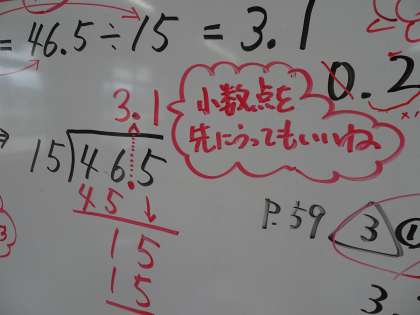 = 46.5÷15 = 3.1
0.2
3.1
小数点を
先にうってもいいね。
15)46.5
45
15
15
P.59
3
①
3.